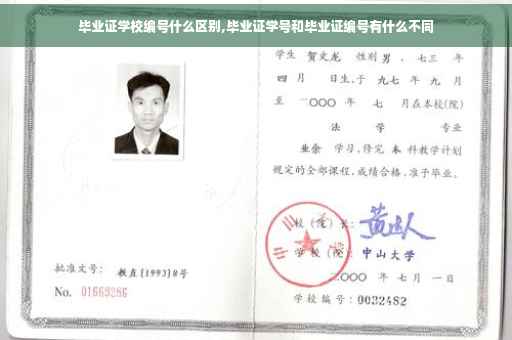 毕业证学校编号什么区别,毕业证学号和毕业证编号有什么不同
学生 贺文龙 性别 男 、七三 年
四 月 日生,于 九七 年 九 月
至 二〇〇〇 年 七 月在本校(院)
法 学 专业
业余 学习,修完 本 科教学计划
规定的全部课程,成绩合格,准予毕业。
校 (院) 长:
学 校 (院): 中山大学
二〇〇〇 年 七 月 一 日
学校编号: 0032482
批准文号: 教直(1993)8号
No. 01669286